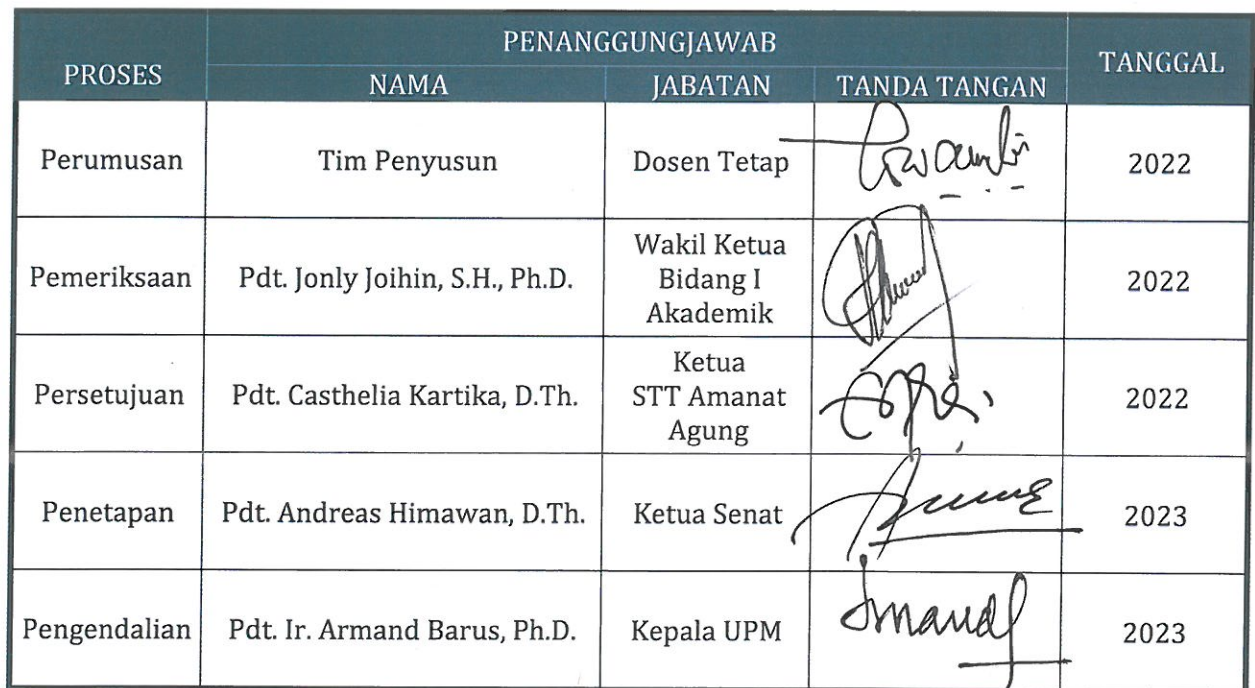 PENANGGUNGJAWAB
PROSES
TANGGAL
NAMA
JABATAN
TANDA TANGAN
Perumusan
Tim Penyusun
Dosen Tetap
2022
Pemeriksaan
Pdt. Jonly Joihin, S.H., Ph.D.
Wakil Ketua
Bidang I
Akademik
2022
Persetujuan
Pdt. Casthelia Kartika, D.Th.
Ketua
STT Amanat
Agung
2022
Penetapan
Pdt. Andreas Himawan, D.Th.
Ketua Senat
2023
Pengendalian
Pdt. Ir. Armand Barus, Ph.D.
Kepala UPM
2023